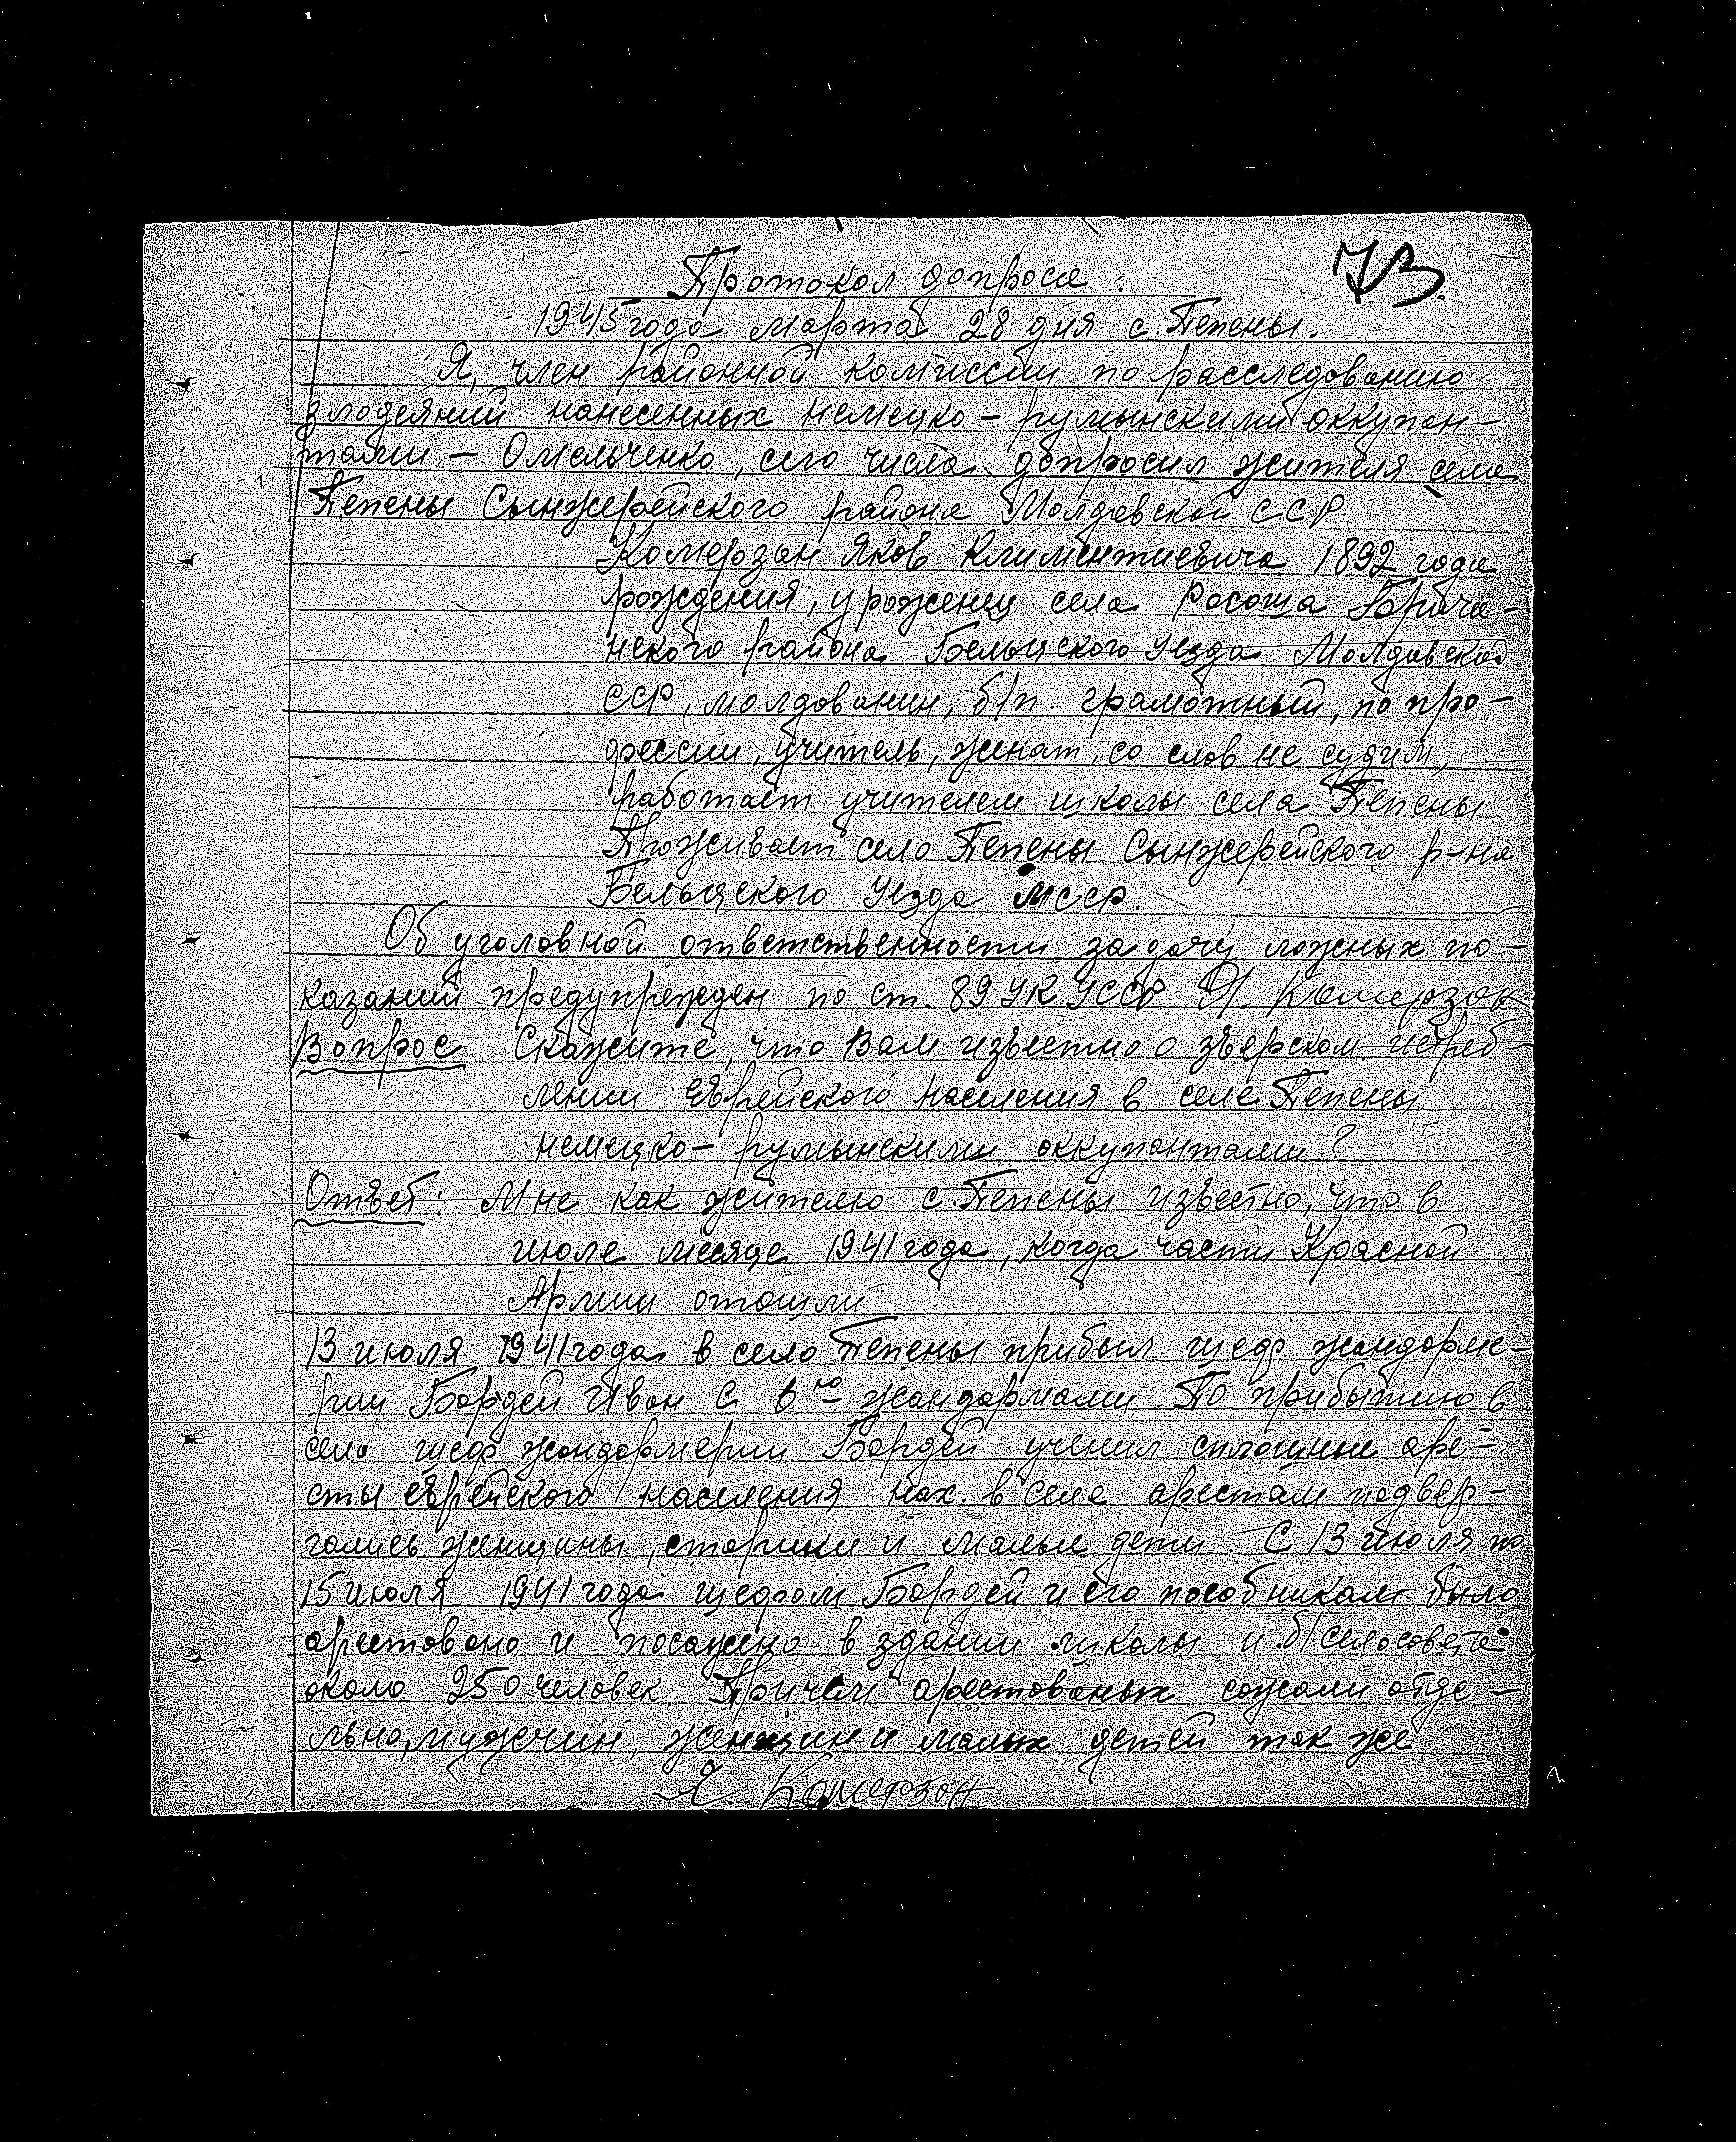 73.
Протокол допроса.
1945 года марта 28 дня с. Пепены.
Я, член районной комиссии по расследованию
злодеяний нанесенных немецко – румынскими оккупан–
тами – Омельченко, сего числа допросил жителя села
Пепены Сынжерейского района Молдавской ССР
Комерзан Яков Климентиевича 1892 года
рождения, уроженец села Росоша
нского района Бельцского уезда Молдавской
ССР, молдованин, б/п. грамотный, по про–
фессии, учитель, женат, со слов не судим,
работает учителем школы села Пепены
Проживает село Пепены Сынжерейского р-на
Бельцского уезда МССР.
Об уголовной ответственности за дачу ложных по–
казаний предупрежден по ст. 89 УК УССР Я. Комерзан
Вопрос Скажите, что Вам известно о зверском истреб–
лении Еврейского населения в селе Пепены
немецко – румынскими оккупантами?
Ответ: Мне как жителю с. Пепены известно, что в
июле месяце 1941 года, когда части Красной
Армии отошли
13 июля 1941 года в село Пепены прибыл шеф жандарме–
рии Бордей Иван с 6ю жандармами. По прибытию в
село шеф жандормерии Бордей учинил сплошные аре–
сты еврейского населения нах. в селе арестам подвер–
гались женщины, старики и малые дети. С 13 июля по
15 июля 1941 года шефом Бордей и его пособникам было
арестовано и посажено в здании школы и б/сельсовета
около 250 человек. Причем арестованых сожали отде–
льно, мужчин, женщин и малых детей так же
Я. Комерзан